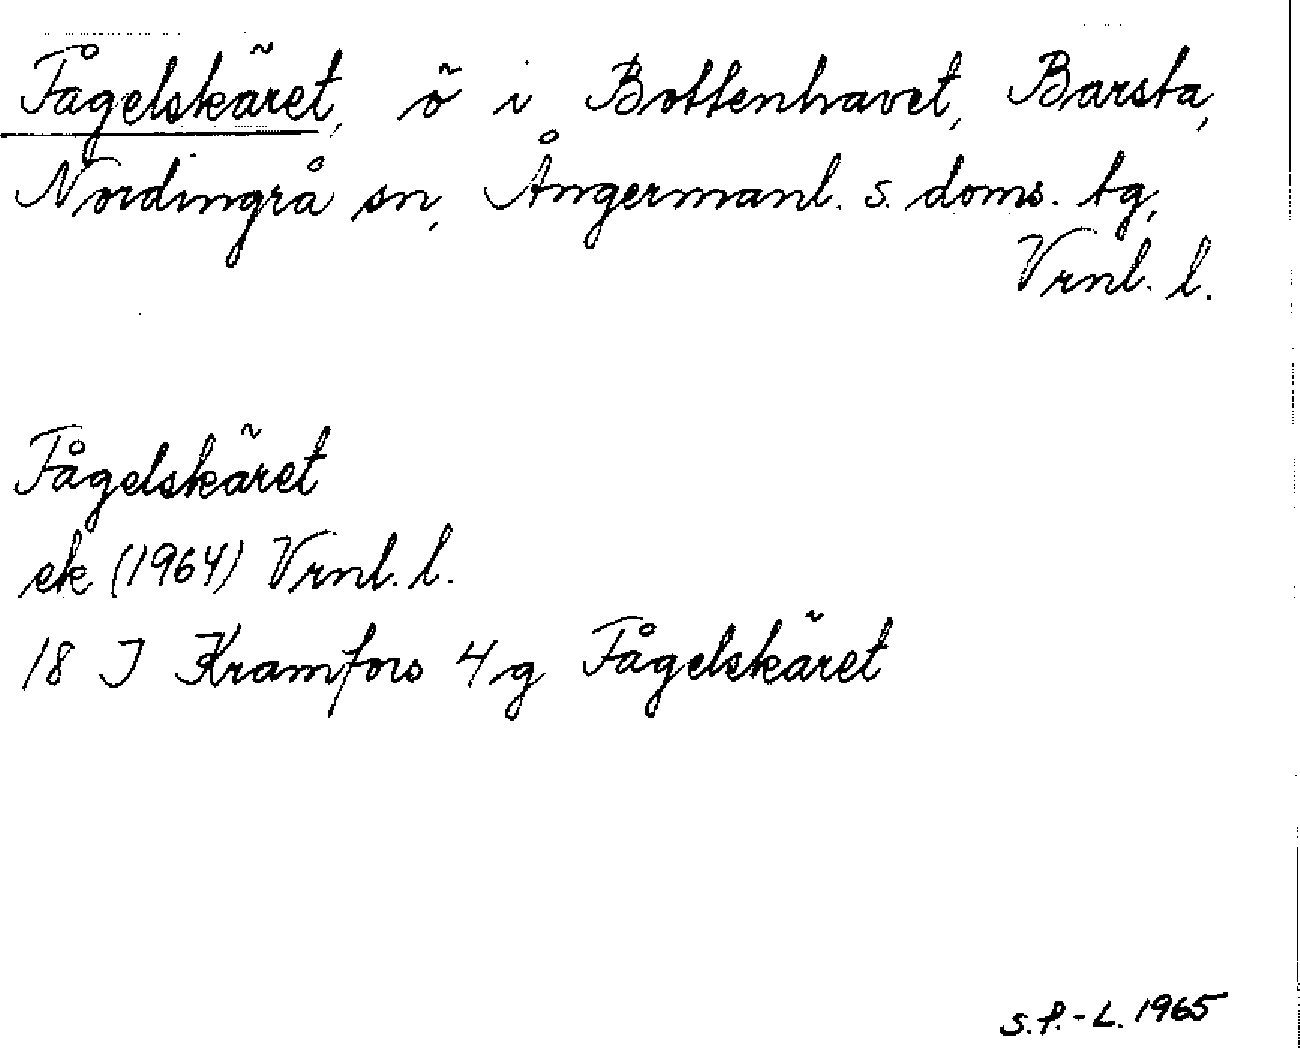 Fågelskäret, ö i Bottenhavet, Barsta,
Nordingrå sn, Ångermanl. s. doms. tg,
Vrnl. l.
Fågelskäret
ek (1964) Vrnl. l.
18 J Kramfors 4 g Fågelskäret
S.P.-L. 1965